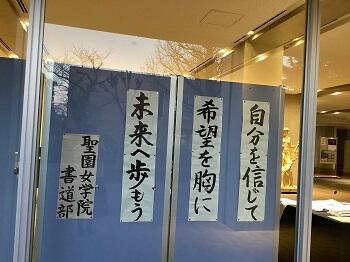 自分を信じて
希望を胸に
未来へ歩もう
聖園女学院
書道部